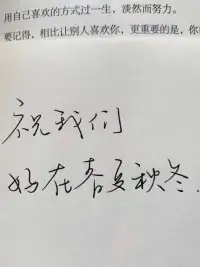 用自己喜欢的方式过一生，淡然而努力。
要记得，相比让别人喜欢你，更重要的是，你
祝我们
好在春夏秋冬.